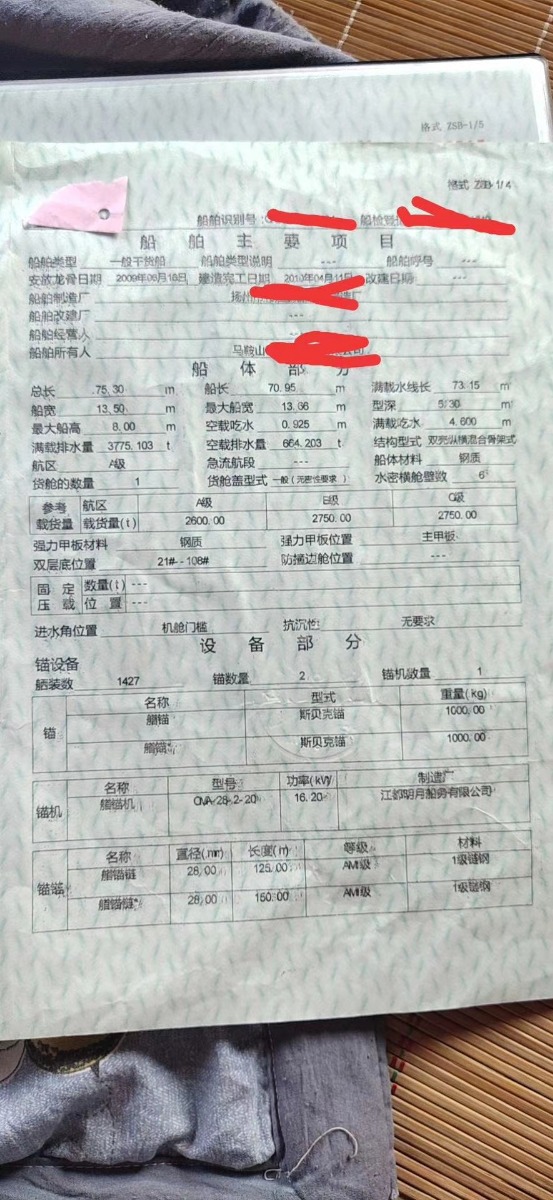 格式 ZSB-1/5
格式 ZSB-1/4
船舶识别号:
船舶主要项目
船舶类型 一般干货船 船舶类型说明 --- 船舶呼号 ---
安放龙骨日期 2009年06月18日 建造完工日期 2010年04月11日 改建日期 ---
船舶制造厂 扬州
船舶改建厂 ---
船舶经营人 ---
船舶所有人 马鞍山
船体部分
总长 75.30 m 船长 70.95 m 满载水线长 73.15 m
船宽 13.50 m 最大船宽 13.66 m 型深 5.30 m
最大船高 8.00 m 空载吃水 0.925 m 满载吃水 4.600 m
满载排水量 3775.103 t 空载排水量 664.203 t 结构型式 双壳纵横混合骨架式
航区 A级 急流航段 --- 船体材料 钢质
货舱的数量 1 货舱盖型式 一般(无密性要求) 水密横舱壁数 6
参考载货量 航区 A级 B级 C级
载货量(t) 2600.00 2750.00 2750.00
强力甲板材料 钢质 强力甲板位置 主甲板
双层底位置 21#--108# 防撞边舱位置 ---
固定压载 数量(t) ---
位置 ---
进水角位置 机舱门槛 抗沉性: 无要求
设备部分
锚设备
舾装数 1427 锚数量 2 锚机数量 1
锚 名称 型式 重量(kg)
艏锚 斯贝克锚 1000.00
艏锚 斯贝克锚 1000.00
锚机 名称 型号 功率(kW) 制造厂
艏锚机 16.20 江都明月船务有限公司
锚链 名称 直径(mm) 长度(m) 等级 材料
艏锚链 28.00 125.00 AM1级 1级链钢
艏锚链 28.00 150.00 AM1级 1级链钢